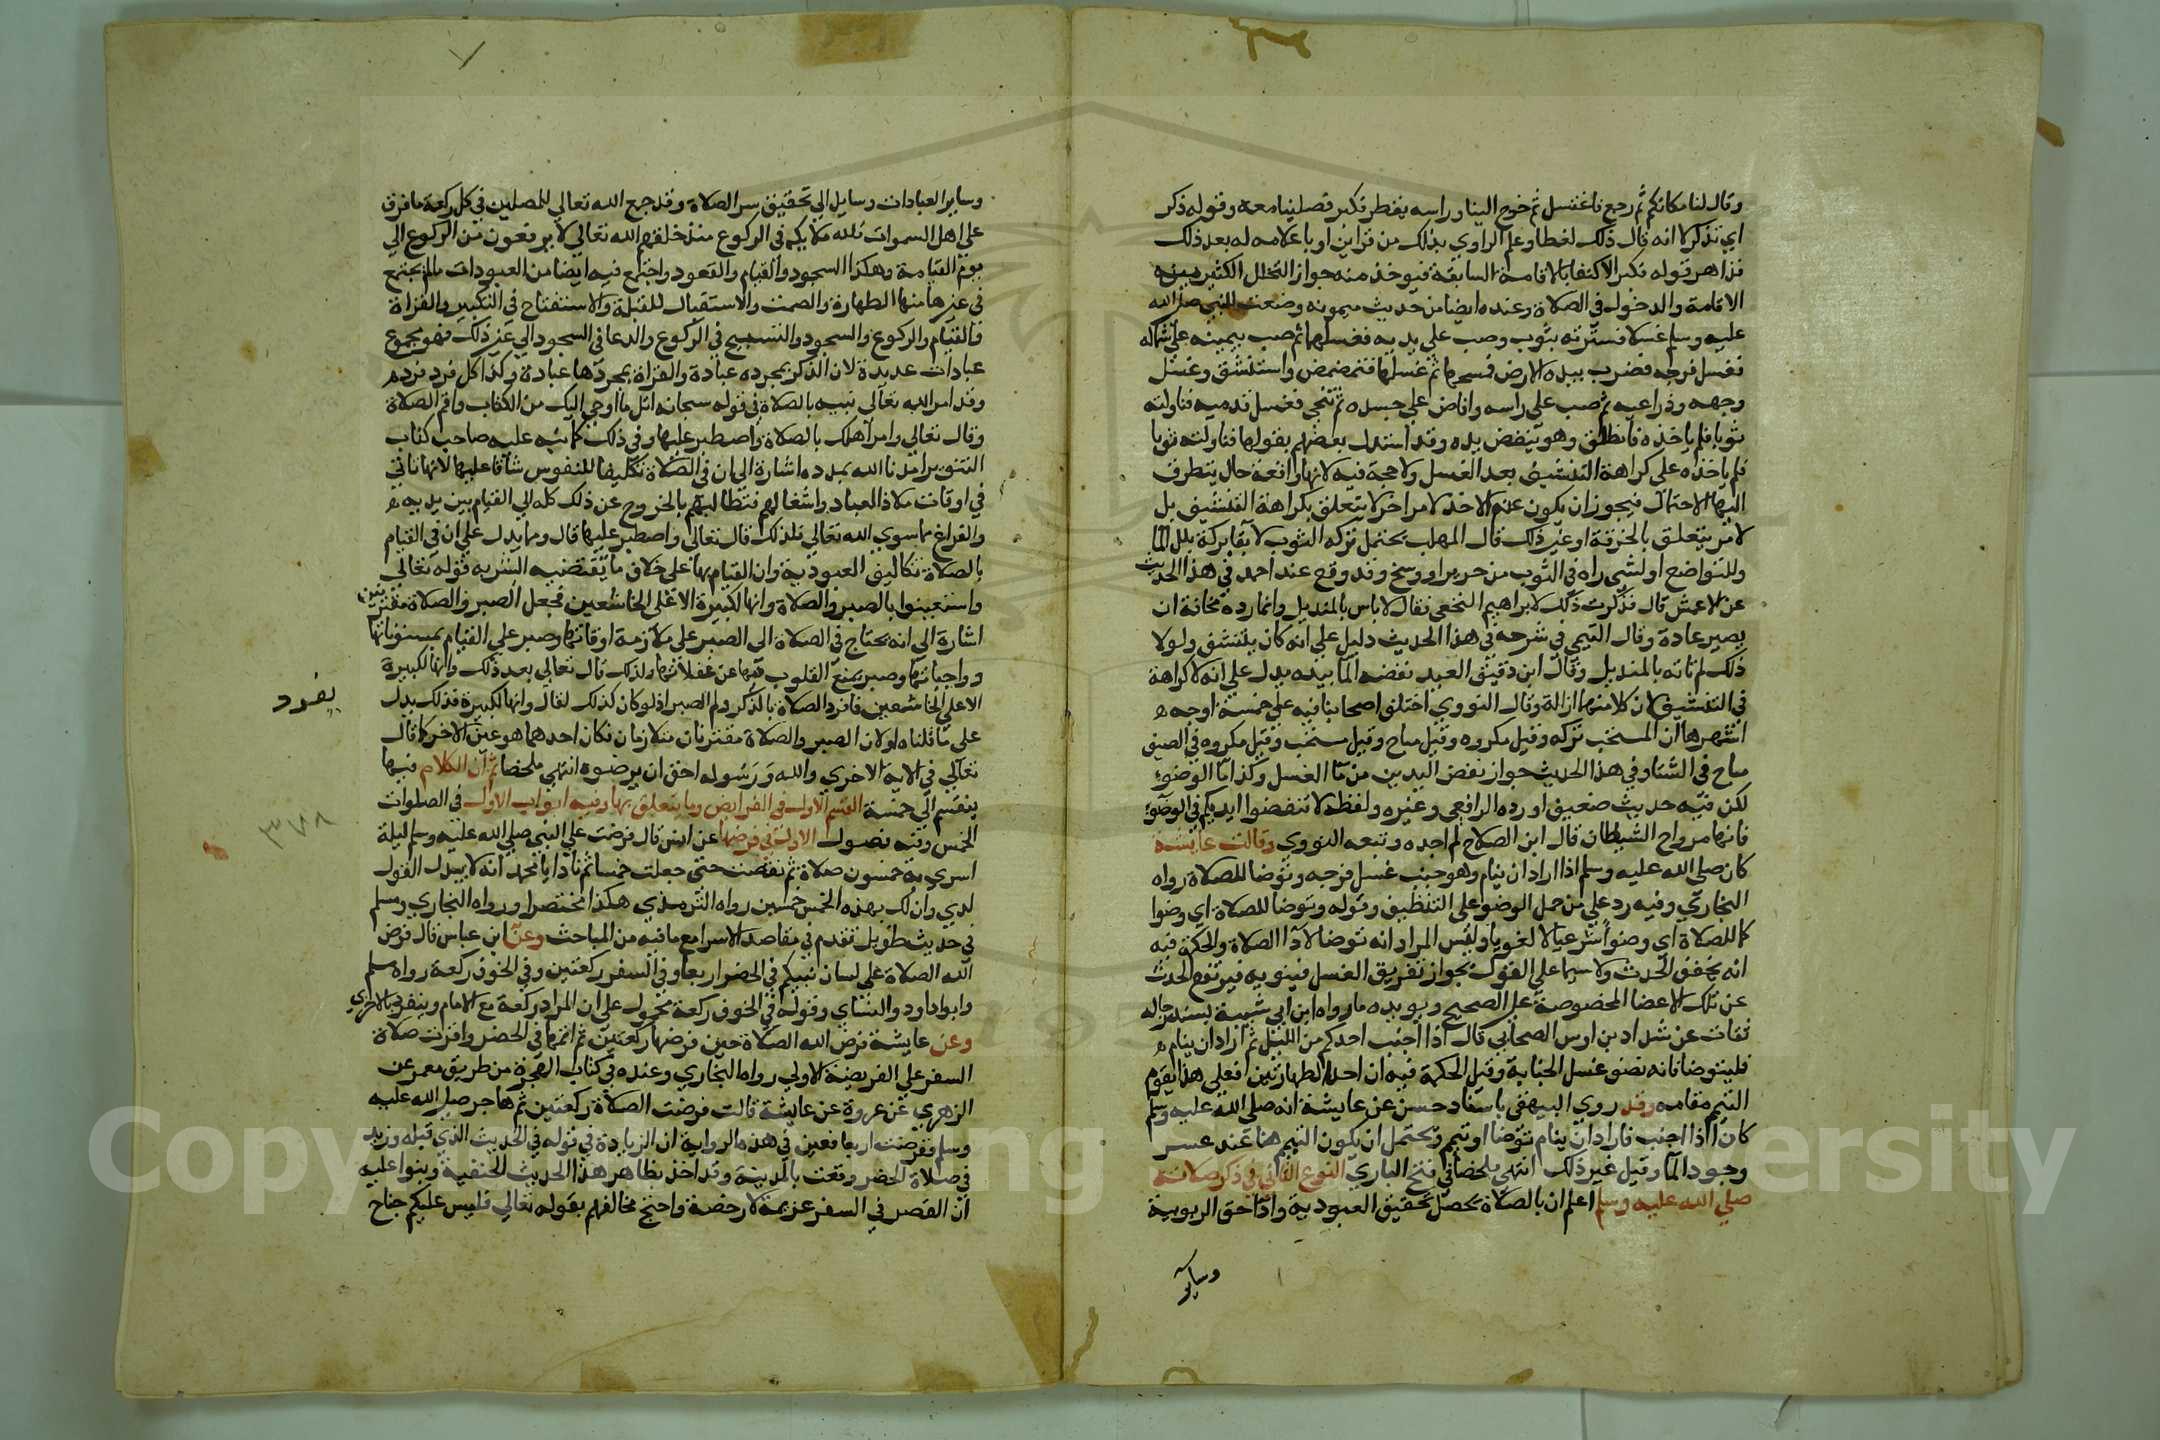 وقال لنا مكانكم ثم رجع فاغتسل ثم خرج الينا وراسه يقطر فكبر فصلينا معه وقوله ذكر
اي تذكر لا انه قال ذلك لفظا وعلم الراوي بذلك من قراين او باعلامه له بعد ذلك
فزاهر قوله فكبر الاكتفا بالاقامة السابقة فيوخذ منه جواز التخلل الكثير بين
الاقامة والدخول في الصلاة وعنده ايضا من حديث ميمونه وضعت للنبي صلى الله
عليه وسلم غسلا فسترته بثوب وصب على يديه فغسلهما ثم صب بيمينه على شماله
فغسل فرجه فضرب بيده الارض فمسحها ثم غسلها فتمضمض واستنشق وغسل
وجهه وذراعيه ثم صب على راسه وافاض على جسده ثم تنحي فغسل قدميه فناولته
ثوبا فلم ياخذه فانطلق وهو ينفض يده وقد استدل بعضهم بقولها فناولته ثوبا
فلم ياخذه على كراهة التنشيف بعد الغسل ولا حجة فيه لانها واقعة حال يتطرف
اليها الاحتمال فيجوز ان يكون عدم الاخذ لامر اخر لا يتعلق بكراهة التنشيف بل
لامر يتعلق بالخرقة او غير ذلك قال المهلب يحتمل تركه الثوب لابقا بركة بلل الما
وللتواضع او لشى راه في الثوب من حرير او وسخ وقد وقع عند احمد في هذا الحديث
عن الاعمش قال فذكرت ذلك لابراهيم النخعي فقال لا باس بالمنديل وانما رده مخافة ان
يصير عادة وقال التيمي في شرحه في هذا الحديث دليل علي انه كان ينتشف ولولا
ذلك لم تاته بالمنديل وقال ابن دقيق العيد نفضه الما بيده يدل علي انه لا كراهة
في التنشيف لان كلا منهما ازالة وقال النووي اختلف اصحابنا فيه علي خمسة اوجه
اشهرها ان المستحب تركه وقيل مكروه وقيل مباح وقيل مستحب وقيل مكروه في الصيف
مباح في الشتا وفي هذ الحديث جواز نفض اليدين من ما الغسل وكذا ما الوضوء
لكن فيه حديث ضعيف اورده الرافعي وغيره ولفظه لا تنفضوا ايديكم في الوضوء
فانها مراوح الشيطان قال ابن الصلاح لم اجده وتبعه النووي وقالت عايشة
كان صلى الله عليه وسلم اذا اراد ان ينام وهو جنب غسل فرجه وتوضا للصلاة رواه
البخاري وفيه رد علي من حمل الوضوء على التنظيف وقوله وتوضا للصلاة اي وضوا
كما للصلاة اي وضوءا شرعيا لا لغويا وليس المراد انه توضا لادا الصلاة والحكمة فيه
انه يخفف الحدث ولا سيما على القول بجواز تفريق الغسل فينويه فيرتفع الحدث
عن تلك الاعضا المخصوصة على الصحيح ويويده ما رواه ابن ابي شيبة بسند رجاله
ثقات عن شداد بن اوس الصحابي قال اذا اجنب احدكم من الليل ثم اراد ان ينام
فليتوضا فانه نصف غسل الجنابة وقيل الحكمة فيه ان احدا الطهارتين فعلي هذا يقوم
التيمم مقامه وقد روي البيهقي باسناد حسن عن عايشة انه صلى الله عليه وسلم
كان اذا اجنب فاراد ان ينام توضا او تيمم ويحتمل ان يكون التيمم هنا عند عسر
وجود الما وقيل غير ذلك انتهي ملخصا في فتح الباري النوع الثاني في ذكر صلاته
صلي الله عليه وسلم اعلم ان بالصلاة يحصل تحقيق العبودية واداحق الربوبية
وساير
وساير العبادات وسايل الي تحقيق سر الصلاة وقد جمع الله تعالي للمصلين في كل ركعة ما فرق
علي اهل السموات فلله ملايكة في الركوع منذ خلقهم الله تعالي لا يرفعون من الركوع الي
يوم القيامة وهكذا السجود والقيام والقعود واجتمع فيه ايضا من العبوديات ما لم يجتمع
في غيرها منها الطهارة والصمت والاستقبال للقبلة والاستفتاح في التكبير والقراة
والقيام والركوع والسجود والتسبيح في الركوع والدعا في السجود الي غير ذلك فهو مجموع
عبادات عديدة لان الذكر بمجرده عبادة والقراة بمجردها عبادة وكذا كل فرد فرد
وقد امر الله تعالي نبيه بالصلاة في قوله سبحانه اتل ما اوحي اليك من الكتاب واقم الصلاة
وقال تعالي وامر اهلك بالصلاة واصطبر عليها وفي ذلك كما نبه عليه صاحب كتاب
التنوير امدنا الله بمدده اشارة الى ان في الصلاة تكليفا للنفوس شاقا عليها لانها تاتي
في اوقات ملاذ العباد واشغالهم فتطالبهم بالخروج عن ذلك كله الي القيام بين يديه
والفراغ مما سوي الله تعالي فلذلك قال تعالي واصطبر عليها قال ومما يدل علي ان في القيام
بالصلاة تكاليف العبودية وان القيام بها على خلاف ما يقتضيه البشرية قوله تعالي
واستعينوا بالصبر والصلاة وانها لكبيرة الا على الخاشعين فجعل الصبر والصلاة مقترنين
اشارة الى انه يحتاج في الصلاة الى الصبر على ملازمة اوقاتها وصبر على القيام بمسنوناتها
وواجباتها وصبر يمنع القلوب فيها عن غفلاتها ولذلك قال تعالي بعد ذلك وانها لكبيرة
الا علي الخاشعين فافرد الصلاة بالذكر دلم الصبر اذ لو كان كذلك لقال وانها لكبيرة فذلك يدل
على ما قلناه او لان الصبر والصلاة مقترنان متلازمان فكان احدهما هو عين الاخر كما قال
تعالي في الاية الاخري والله ورسوله احق ان يرضوه انتهي ملخصا ثم ان الكلام فيها
ينقسم الي خمسة القسم الاول في الفرايض وما يتعلق بها وفيه ابواب الاول في الصلوات
الخمس وفيه فصول الاول في فرضها عن انس قال فرضت علي النبي صلي الله عليه وسلم ليلة
اسري به خمسون صلاة ثم نقصت حتى جعلت خمسا ثم نادا يا محمد انه لا يبدل القول
لدي وان لك بهذه الخمس خمسين رواه الترمذي هكذا مختصرا ورواه البخاري ومسلم
في حديث طويل تقدم في مقاصد الاسرا مع ما فيه من المباحث وعن ابن عباس قال فرض
الله الصلاة علي لسان نبيكم في الحضر اربعا وفي السفر ركعتين وفي الخوف ركعة رواه مسلم
وابوا داود والنساي وقوله في الخوف ركعة محمول على ان المراد ركعة مع الامام وينفرد بالاخري
وعن عايشة فرض الله الصلاة حين فرضها ركعتين ثم اتمها في الحضر واقرت صلاة
السفر علي الفريضة الاولي رواه البخاري وعنده في كتاب الهجرة من طريق معمر عن
الزهري عن عروة عن عايشة قالت فرضت الصلاة ركعتين ثم هاجر صلى الله عليه
وسلم ففرضت اربعا فعين في هذه الرواية ان الزيادة في قوله في الحديث الذي قبله وزيد
في صلاة الحضر وقعت بالمدينة وقد اخذ بظاهر هذا الحديث الحنفية وبنوا عليه
ان القصر في السفر عزيمة لا رخصة واحتج مخالفهم بقوله تعالي فليس عليكم جناح
٣٧٨